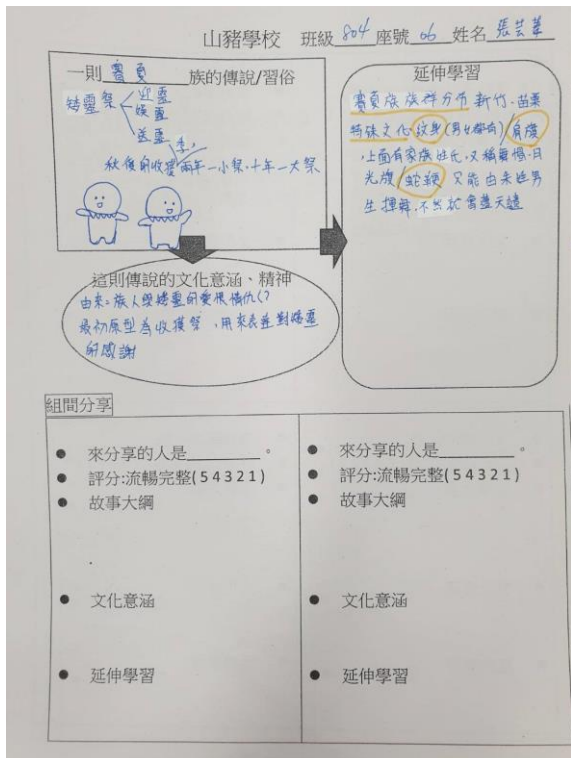 山豬學校 班級 804 座號 06 姓名 張芸
一則 賽夏 族的傳說/習俗
矮靈祭
迎靈
娛靈
送靈
季,
秋後的收穫 兩年一小祭,十年一大祭
延伸學習
賽夏族族群分布 新竹、苗栗
特殊文化 紋身(男女都有)/肩度
,上面有家族姓氏,又稱舞帽、月
光旗/蛇鞭 又能由未姓男
生揮舞,不然會遭天譴
這則傳說的文化意涵、精神
由來:族人與矮靈的愛恨情仇(?
最初原型為收獲祭,用來表達對矮靈
的感謝
組間分享
來分享的人是 。
評分:流暢完整(54321)
故事大綱
文化意涵
延伸學習
來分享的人是 。
評分:流暢完整(54321)
故事大綱
文化意涵
延伸學習